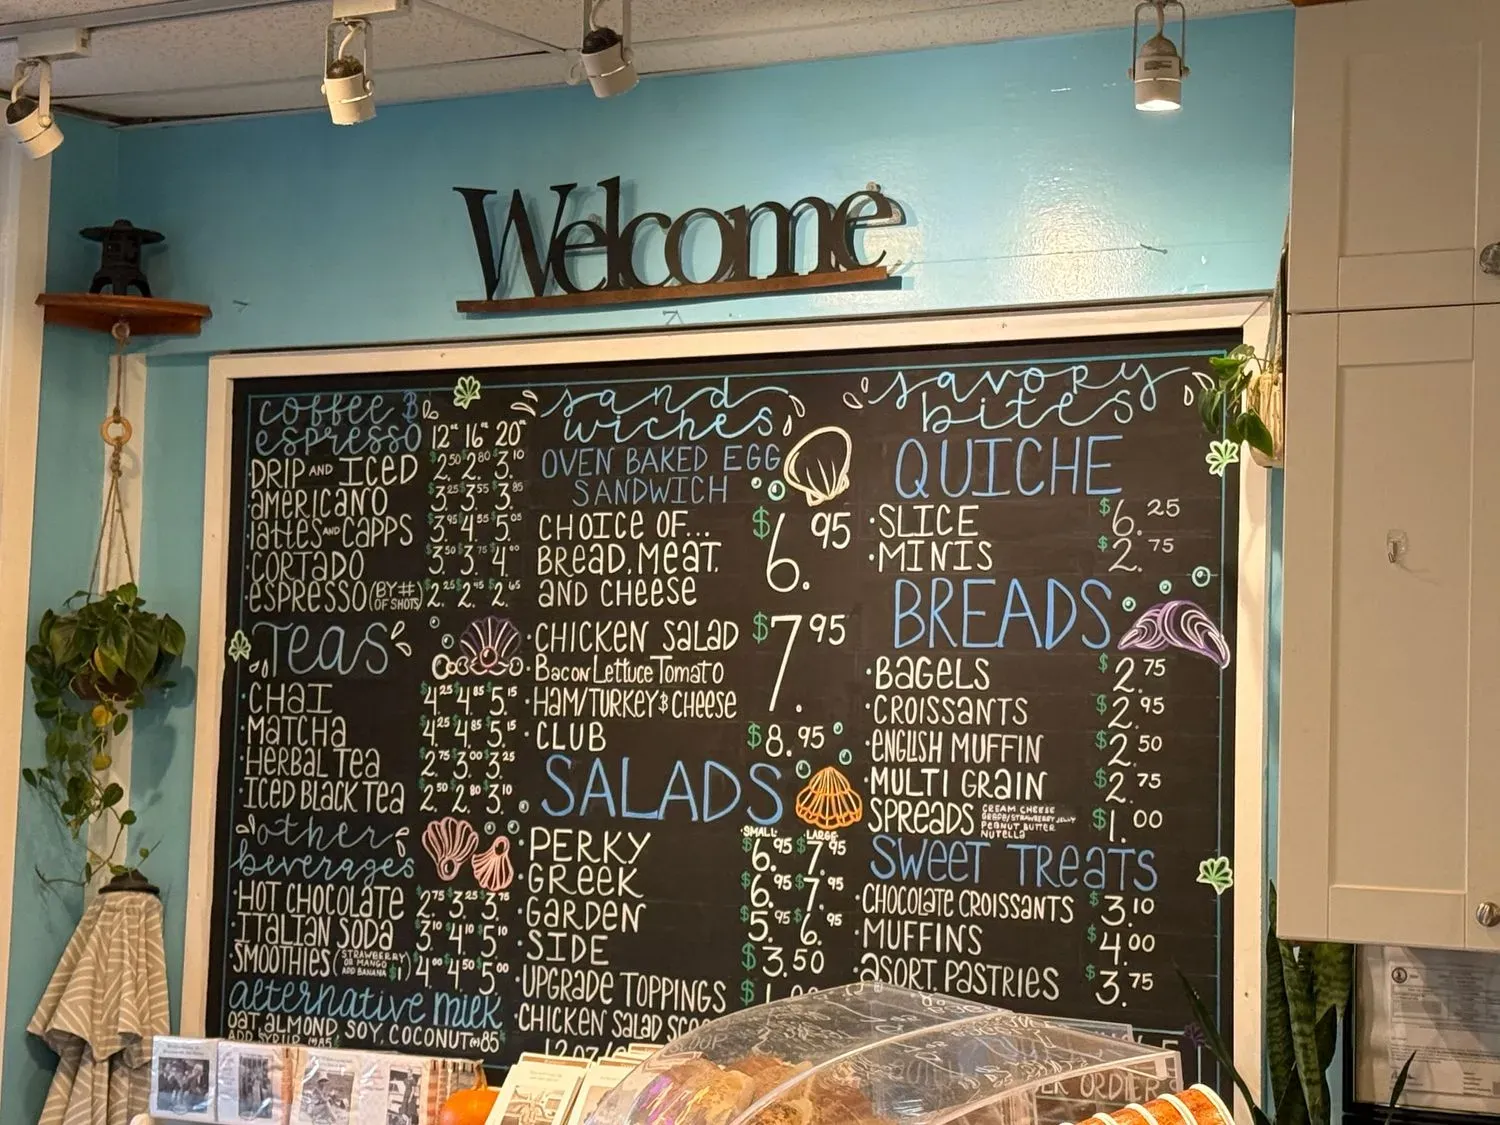 Welcome
coffee &
espresso 12oz 16oz 20oz
·DRIP AND ICED $2.50 $2.80 $3.10
·AMERICANO $3.25 $3.55 $3.85
·LATTES AND CAPPS $3.95 $4.55 $5.05
·CORTADO $3.50 $3.75 $4.00
·ESPRESSO (BY # OF SHOTS) $2.25 $2.45 $2.65
TEAS
·CHAI $4.25 $4.85 $5.15
·MATCHA $4.25 $4.85 $5.15
·HERBAL TEA $2.75 $3.00 $3.25
·ICED BLACK TEA $2.50 $2.80 $3.10
other
beverages
·HOT CHOCOLATE $2.75 $3.25 $3.75
·ITALIAN SODA $3.10 $4.10 $5.10
·SMOOTHIES (STRAWBERRY OR MANGO ADD BANANA $1) $4.00 $4.50 $5.00
alternative milk
OAT, ALMOND, SOY, COCONUT (+) 85
ADD SYRUP (+) 85
sand
wiches
OVEN BAKED EGG
SANDWICH
CHOICE OF... $6.95
BREAD, MEAT,
AND CHEESE
·CHICKEN SALAD $7.95
·BACON LETTUCE TOMATO
·HAM/TURKEY & CHEESE
·CLUB $8.95
SALADS
SMALL LARGE
·PERKY $6.95 $7.95
·GREEK $6.95 $7.95
·GARDEN $5.95 $6.95
·SIDE $3.50
·UPGRADE TOPPINGS $1.00
·CHICKEN SALAD
savory
bites
QUICHE
·SLICE $6.25
·MINIS $2.75
BREADS
·BAGELS $2.75
·CROISSANTS $2.95
·ENGLISH MUFFIN $2.50
·MULTI GRAIN $2.75
SPREADS CREAM CHEESE $1.00
GRAPE/STRAWBERRY JELLY
PEANUT BUTTER
NUTELLA
SWEET TREATS
·CHOCOLATE CROISSANTS $3.10
·MUFFINS $4.00
·ASORT. PASTRIES $3.75